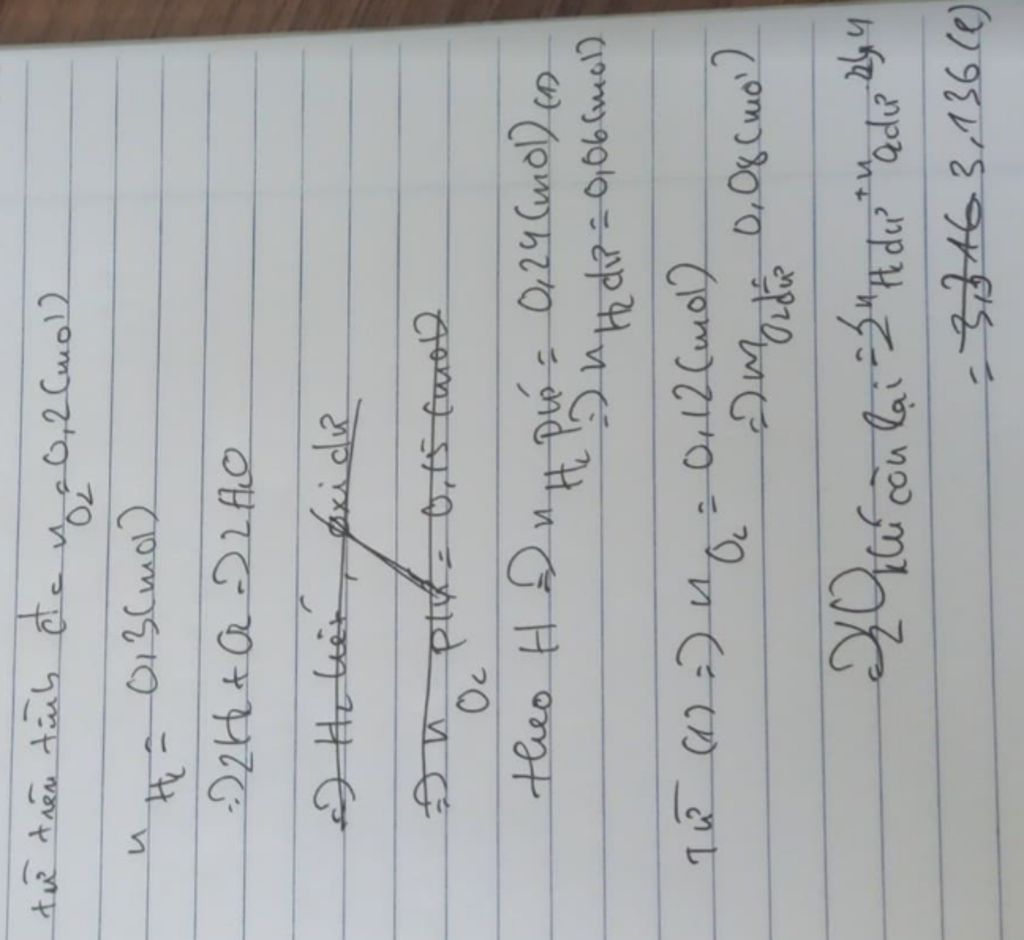 từ trên tính đc n O2 = 0,2(mol)
n H2 = 0,3(mol)
=> 2H2 + O2 => 2H2O
=> H2 hết, oxi dư
=> n O2 pứ = 0,15 (mol)
theo H => n H2 pứ = 0,24(mol) (1)
=> n H2 dư = 0,06(mol)
Từ (1) => n O2 = 0,12(mol)
=> n O2 dư 0,08(mol)
khí còn lại = n H2 dư + n O2 dư
= 3,136(l)